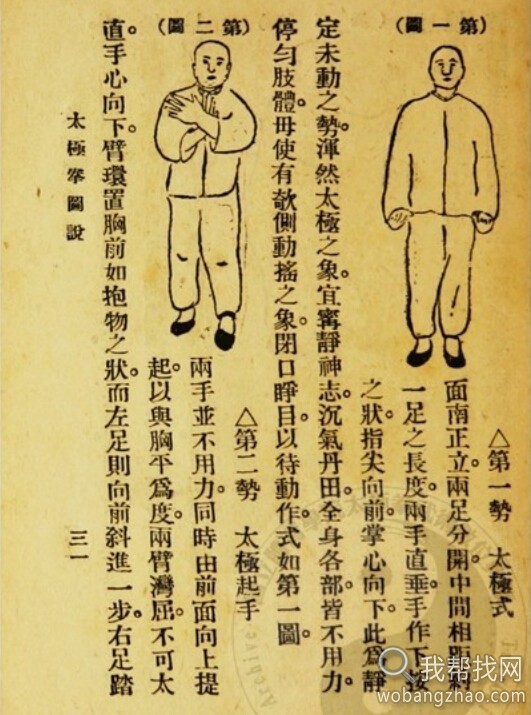 （第一圖）
△第一勢　太極式
面南正立。兩足分開。中間相距約
一足之長度。兩手直垂。手作下按
之狀。指尖向前。掌心向下。此爲靜
定未動之勢。渾然太極之象。宜寗靜神志。沉氣丹田。全身各部。皆不用力。
停勻肢體。毋使有欹側動搖之象。閉口睜目。以待動作。式如第一圖。
（第二圖）
△第二勢　太極起手
兩手並不用力。同時由前面向上提
起。以與胸平爲度。兩臂灣屈。不可太
直。手心向下。臂環置胸前。如抱物之狀。而左足則向前斜進一步。右足踏
太極拳圖說
三一
我帮找网
wobangzhao.com